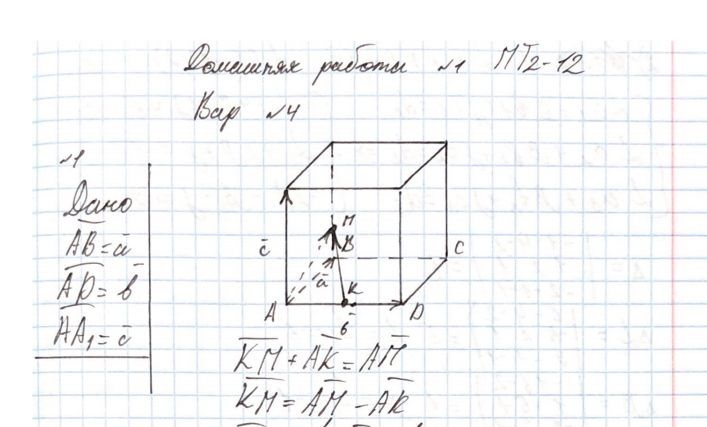 Домашняя работа №1 МТ2-12
Вар №4
№1
Дано
AB=a
AD=b
AA₁=c
M
B
C
c
a
K
A
b
D
KM+AK=AM
KM=AM-AK